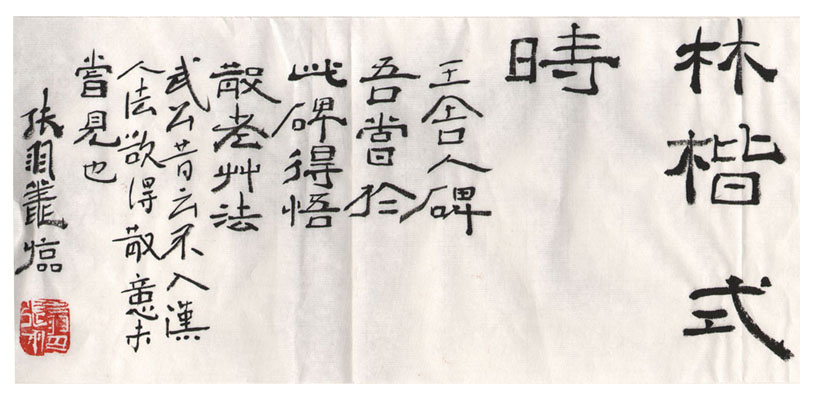 林楷式
時
王舍人碑
吾嘗於
此碑得悟
散老艸法
武公昔云不入漢
人法欲得散意未
嘗見也
张羽䨇临